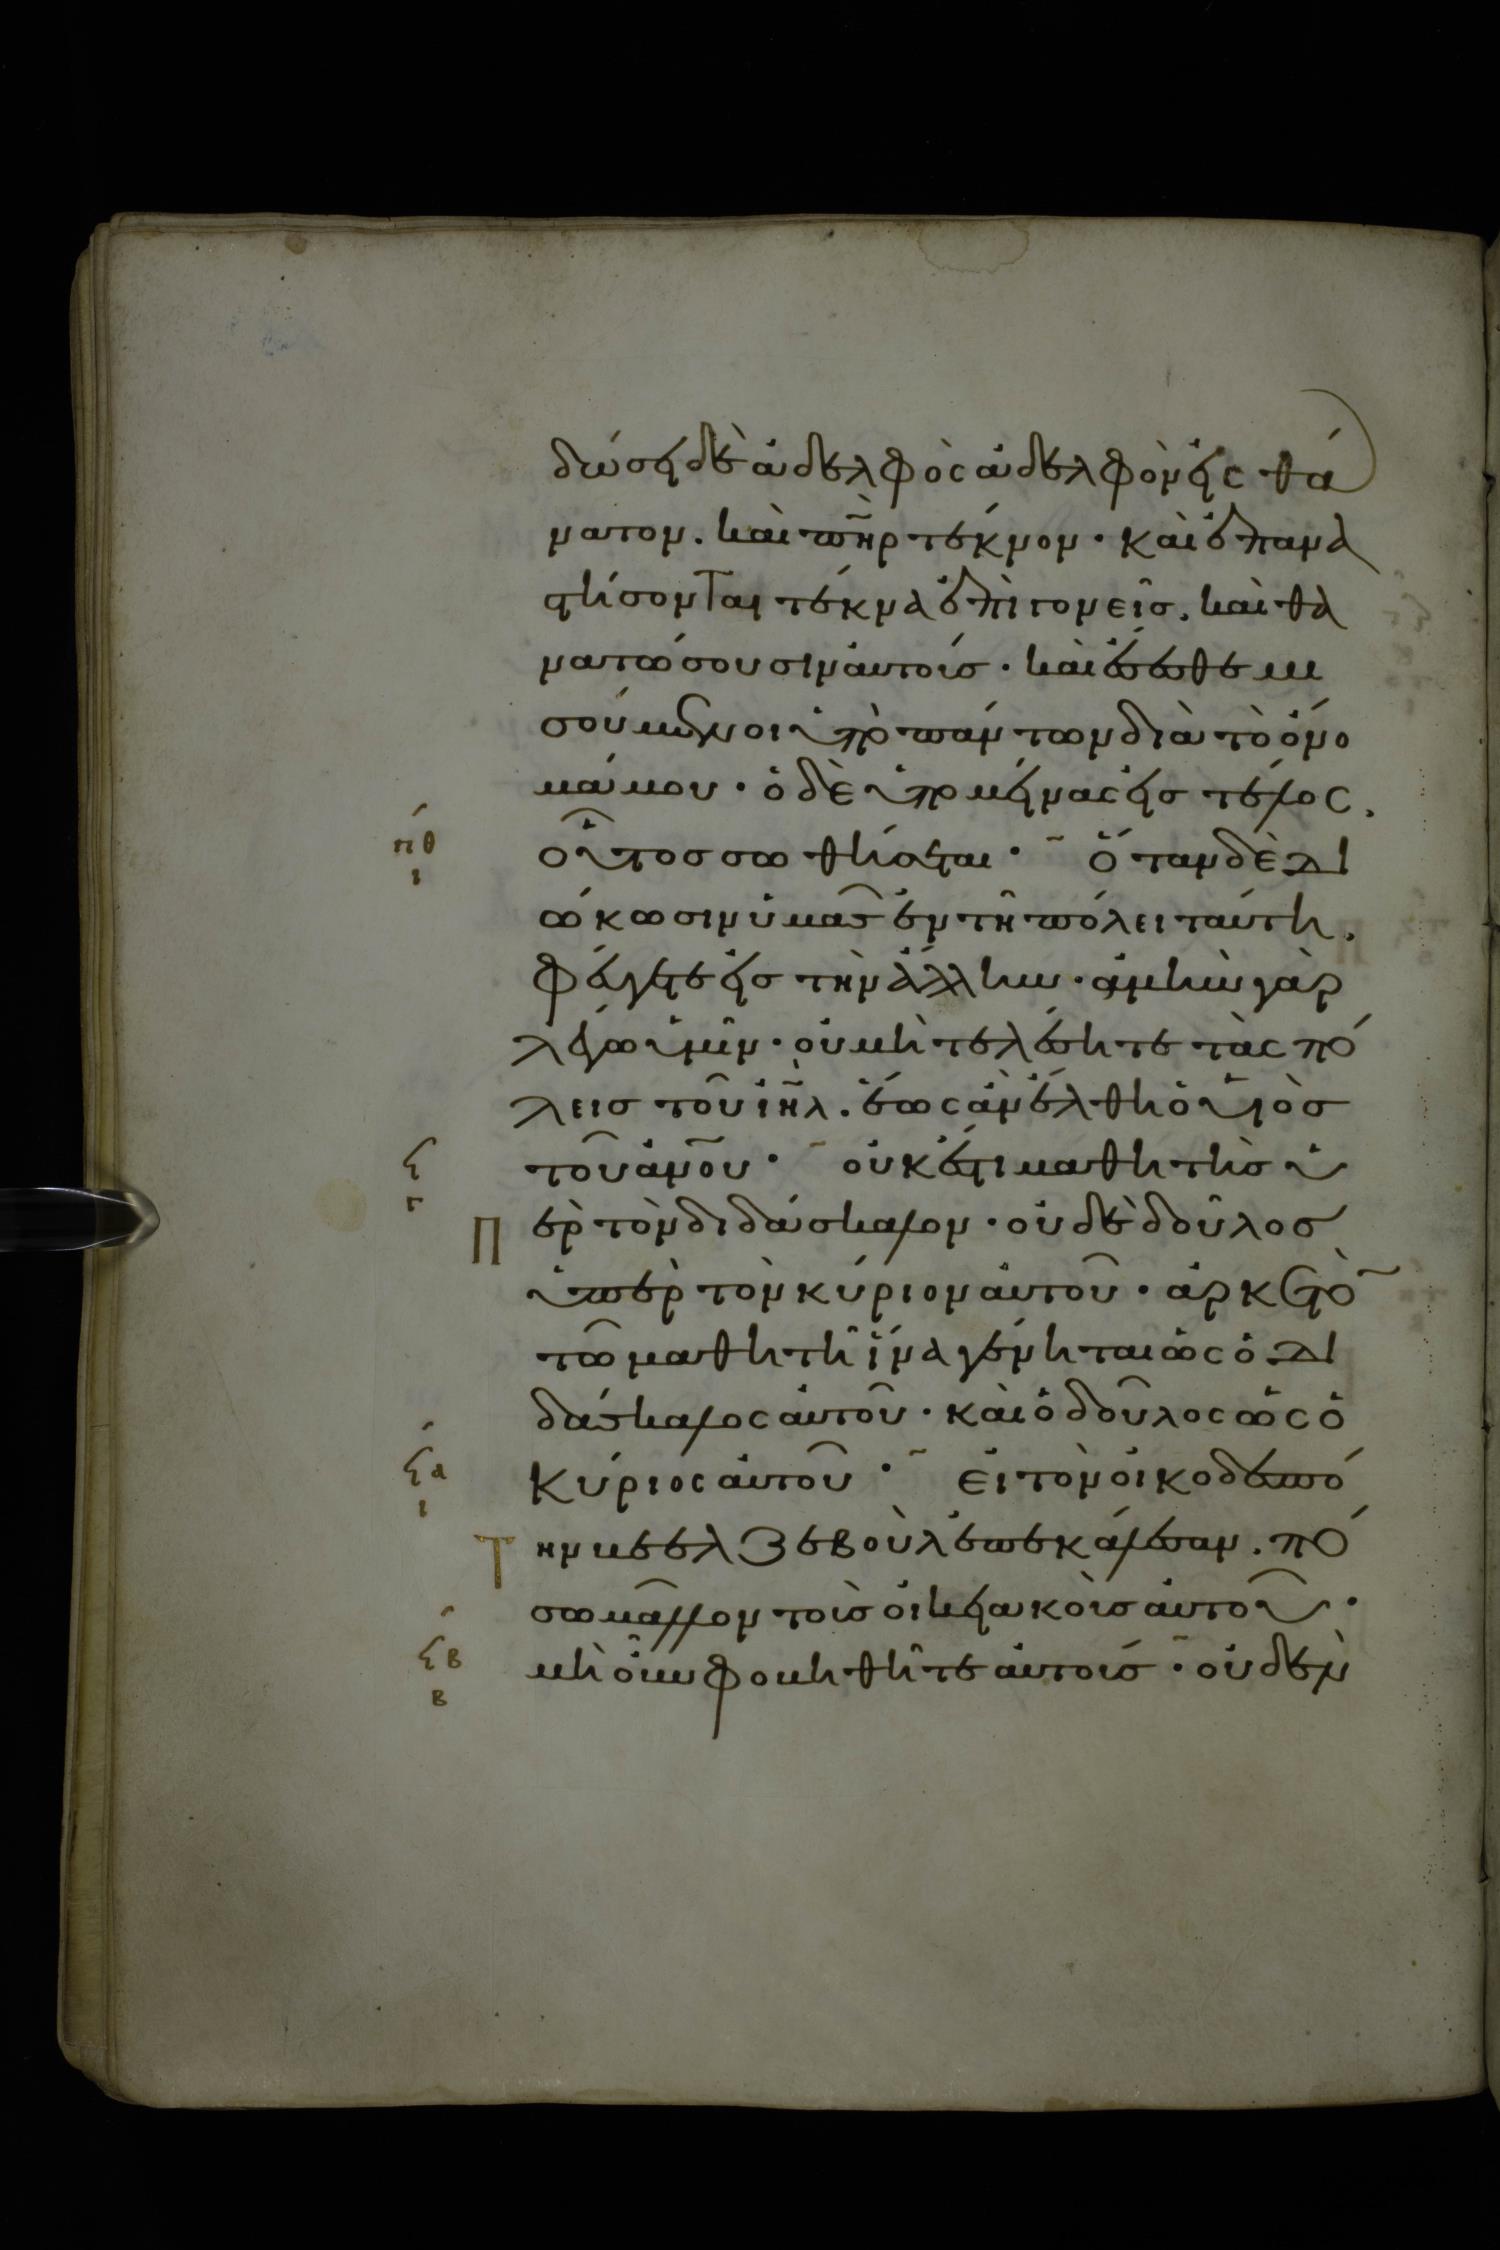 δώσει δὲ ἀδελφὸς ἀδελφὸν εἰς θά
νατον. καὶ πηρ τέκνον· καὶ ἐπανα
στήσονται τέκνα ἐπὶ γονεῖσ. καὶ θα
νατώσουσιν ἀυτοίσ· καὶ ἔσεσθε μι
σούμενοι ὑπὸ πάντων διὰ τὸ ὄνο
μά μου· ὁ δὲ ὑπομείνας εἰσ τέλος.
πθ
ι
οὗτοσ σωθήσεται· ὅταν δὲ δι
ώκωσιν ὑμᾶσ ἐν τῆ πόλει ταύτη.
φέυγετε εἰσ τὴν ἄλλην· ἀμὴν γὰρ
λέγω ὑμῖν· οὐ μὴ τελέσητε τὰς πό
λεισ τοῦ ιηλ. ἕως ἀν ἔλθη ὁ υἱὸσ
ϟ
γ
τοῦ ανου· οὐκ ἔστι μαθητὴσ ὑ
π
ερ τὸν διδάσκαλον· οὐδὲ δοῦλοσ
ὑπερ τὸν κύριον ἀυτοῦ· ἀρκετὸ
τῶ μαθητῆ ἵνα γένηται ὡς ὁ δι
δάσκαλος ἀυτοῦ· καὶ ὁ δοῦλος ὡς ὁ
ϟα
ι
κύριος ἀυτοῦ· εἰ τὸν οἰκοδεσπό
τ
ην βεελζεβοὺλ ἐπεκάλεσαν. πό
σω μᾶλλον τοὶσ οἰκειακοὶσ ἀυτοῦ·
ϟβ
β
μὴ οὖν φοβηθῆτε ἀυτοίσ· οὐδὲν